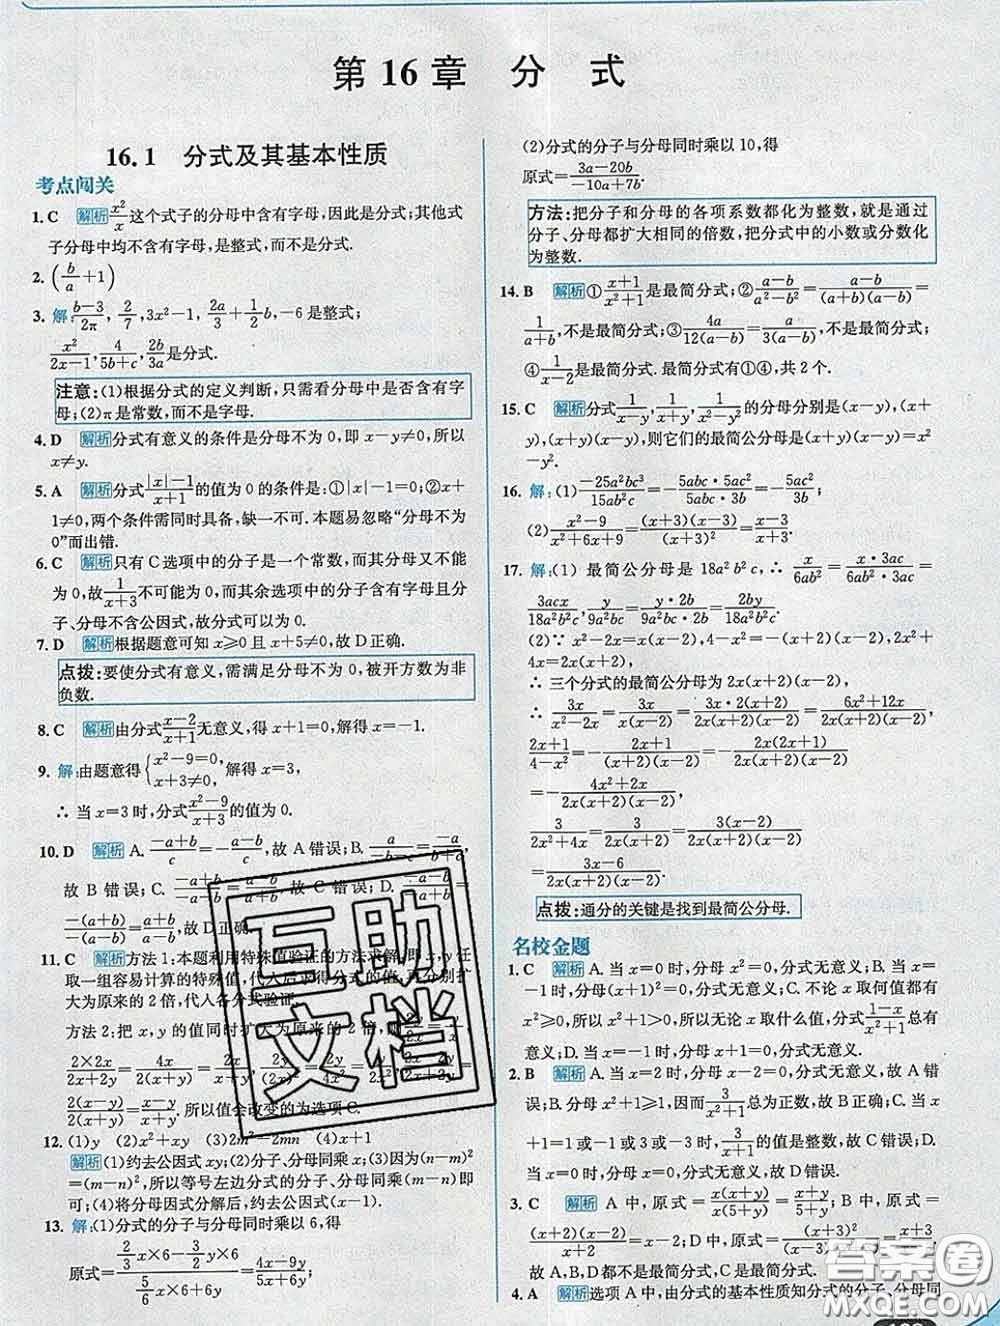 第 16 章　分　式
16.1　分式及其基本性质
考点闯关
1. C　解析 x²/x 这个式子的分母中含有字母,因此是分式;其他式
子分母中均不含有字母,是整式,而不是分式.
2. (b/a+1)
3. 解: (b−3)/2π, 2/7, 3x²−1, 2a/3+1/2b, −6 是整式;
x²/(2x−1), 4/(5b+c), 2b/3a 是分式.
注意:(1)根据分式的定义判断,只需看分母中是否含有字
母;(2)π是常数,而不是字母.
4. D　解析 分式有意义的条件是分母不为 0,即 x−y≠0,所以
x≠y.
5. A　解析 分式 (|x|−1)/(x+1) 的值为 0 的条件是:①|x|−1=0;②x+
1≠0,两个条件需同时具备,缺一不可.本题易忽略“分母不为
0”而出错.
6. C　解析 只有 C 选项中的分子是一个常数,而其分母又不能
为 0,故 1/(x+3) 不可能为 0,而其余选项中的分子含有字母且分
子、分母不含公因式,故分式可以为 0.
7. D　解析 根据题意可知 x≥0 且 x+5≠0,故 D 正确.
点拨:要使分式有意义,需满足分母不为 0,被开方数为非
负数.
8. C　解析 由分式 (x−2)/(x+1) 无意义,得 x+1=0,解得 x=−1.
9. 解:由题意得 {x²−9=0, x+3≠0, 解得 x=3,
∴ 当 x=3 时,分式 (x²−9)/(x+3) 的值为 0.
10. D　解析 A. (−a+b)/c = −(a−b)/c, 故 A 错误;B. −a/(b−a) = a/(a−b),
故 B 错误;C. (−a−b)/c = −(a+b)/c, 故 C 错误;D. (−a−b)/(−a+b)
= −(a+b)/−(a−b) = (a+b)/(a−b), 故 D 正确.
11. C　解析 方法 1:本题利用特殊值验证的方法求解,即 x,y 任
取一组容易计算的特殊值,代入后求得分式的值,再分别扩
大为原来的 2 倍,代入各分式验证.
方法 2:把 x,y 的值同时扩大为原来的 2 倍,
(2×2x)/(2x+2y) = 4x/2(x+y)
2(x−y)/2(x+y) = (x−y)/(x+y). 所以值会改变的为选项 C.
12. (1)y　(2)x²+xy　(3)2m²−2mn　(4)x
解析 (1)约去公因式 xy;(2)分子、分母同乘 x;(3)因为(n−m)²
=(m−n)²,所以等号左边分式的分子、分母同乘(m−n)即
可;(4)将分母因式分解后,约去公因式(x−1).
13. 解:(1)分式的分子与分母同时乘以 6,得
原式 = (2/3x×6−3/2y×6)/(5/6x×6+y×6) = (4x−9y)/(5x+6y);
(2)分式的分子与分母同时乘以 10,得
原式 = (3a−20b)/(−10a+7b).
方法:把分子和分母的各项系数都化为整数,就是通过
分子、分母都扩大相同的倍数,把分式中的小数或分数化
为整数.
14. B　解析 ① (x+1)/(x²+1) 是最简分式;② (a−b)/(a²−b²) = (a−b)/(a+b)(a−b) =
1/(a+b), 不是最简分式;③ 4a/12(a−b) = a/3(a−b), 不是最简分式;
④ 1/(x−2) 是最简分式.最简分式有①④,共 2 个.
15. C　解析 分式 1/(x−y), 1/(x+y), 1/(x²−y²) 的分母分别是(x−y),(x+
y),(x+y)(x−y),则它们的最简公分母是(x+y)(x−y)=x²
−y².
16. 解:(1) −25a²bc³/15ab²c = −(5abc·5ac²)/(5abc·3b) = −5ac²/3b;
(2) (x²−9)/(x²+6x+9) = (x+3)(x−3)/(x+3)² = (x−3)/(x+3).
17. 解:(1) 最简公分母是 18a²b²c, ∴ x/6ab² = (x·3ac)/(6ab²·3ac) =
3acx/18a²b²c, y/9a²bc = (y·2b)/(9a²bc·2b) = 2by/18a²b²c.
(2)∵ x²−2x=x(x−2),4−x²=−(x+2)(x−2),2x²+
4x=2x(x+2),
∴ 三个分式的最简公分母为 2x(x+2)(x−2),
∴ 3x/(x²−2x) = 3x/x(x−2) = 3x·2(x+2)/2x(x+2)(x−2) = (6x²+12x)/2x(x+2)(x−2),
(2x+1)/(4−x²) = −(2x+1)/(x+2)(x−2) = −2x(2x+1)/2x(x+2)(x−2)
= −(4x²+2x)/2x(x+2)(x−2),
3/(2x²+4x) = 3/2x(x+2) = 3(x−2)/2x(x+2)(x−2)
= (3x−6)/2x(x+2)(x−2).
点拨:通分的关键是找到最简公分母.
名校金题
1. C　解析 A. 当 x=0 时,分母 x²=0,分式无意义;B. 当 x=
−1 时,分母(x+1)²=0,分式无意义;C. 不论 x 取何值都有
x²≥0,所以 x²+1>0,所以无论 x 取什么值,分式 (1−x)/(x²+1) 总有
意义;D. 当 x=−1 时,分母 x+1=0,分式无意义.
2. B　解析 A. 当 x=2 时,分母 x−2=0,分式无意义,故 A 错
误;B. 分母 x²+1≥1,因而 1/(x²+1) 总为正数,故 B 正确;C. 当 x
+1=1 或−1 或 3 或−3 时, 3/(x+1) 的值是整数,故 C 错误;D.
当 x=0 时,分母 x²=0,分式无意义,故 D 错误.
3. C　解析 A 中,原式 = x(x+y)/x(5+y) = (x+y)/(5+y); B 中,原式 =
(x+2)(x−2)/(x+2) = x−2;D 中,
故 A,B,D 都不是最简分式,C 是最简分式.
4. A　解析 选项 A 中,由分式的基本性质知分式的分子、分母同
互助
文档
答案圈
MXQE.COM